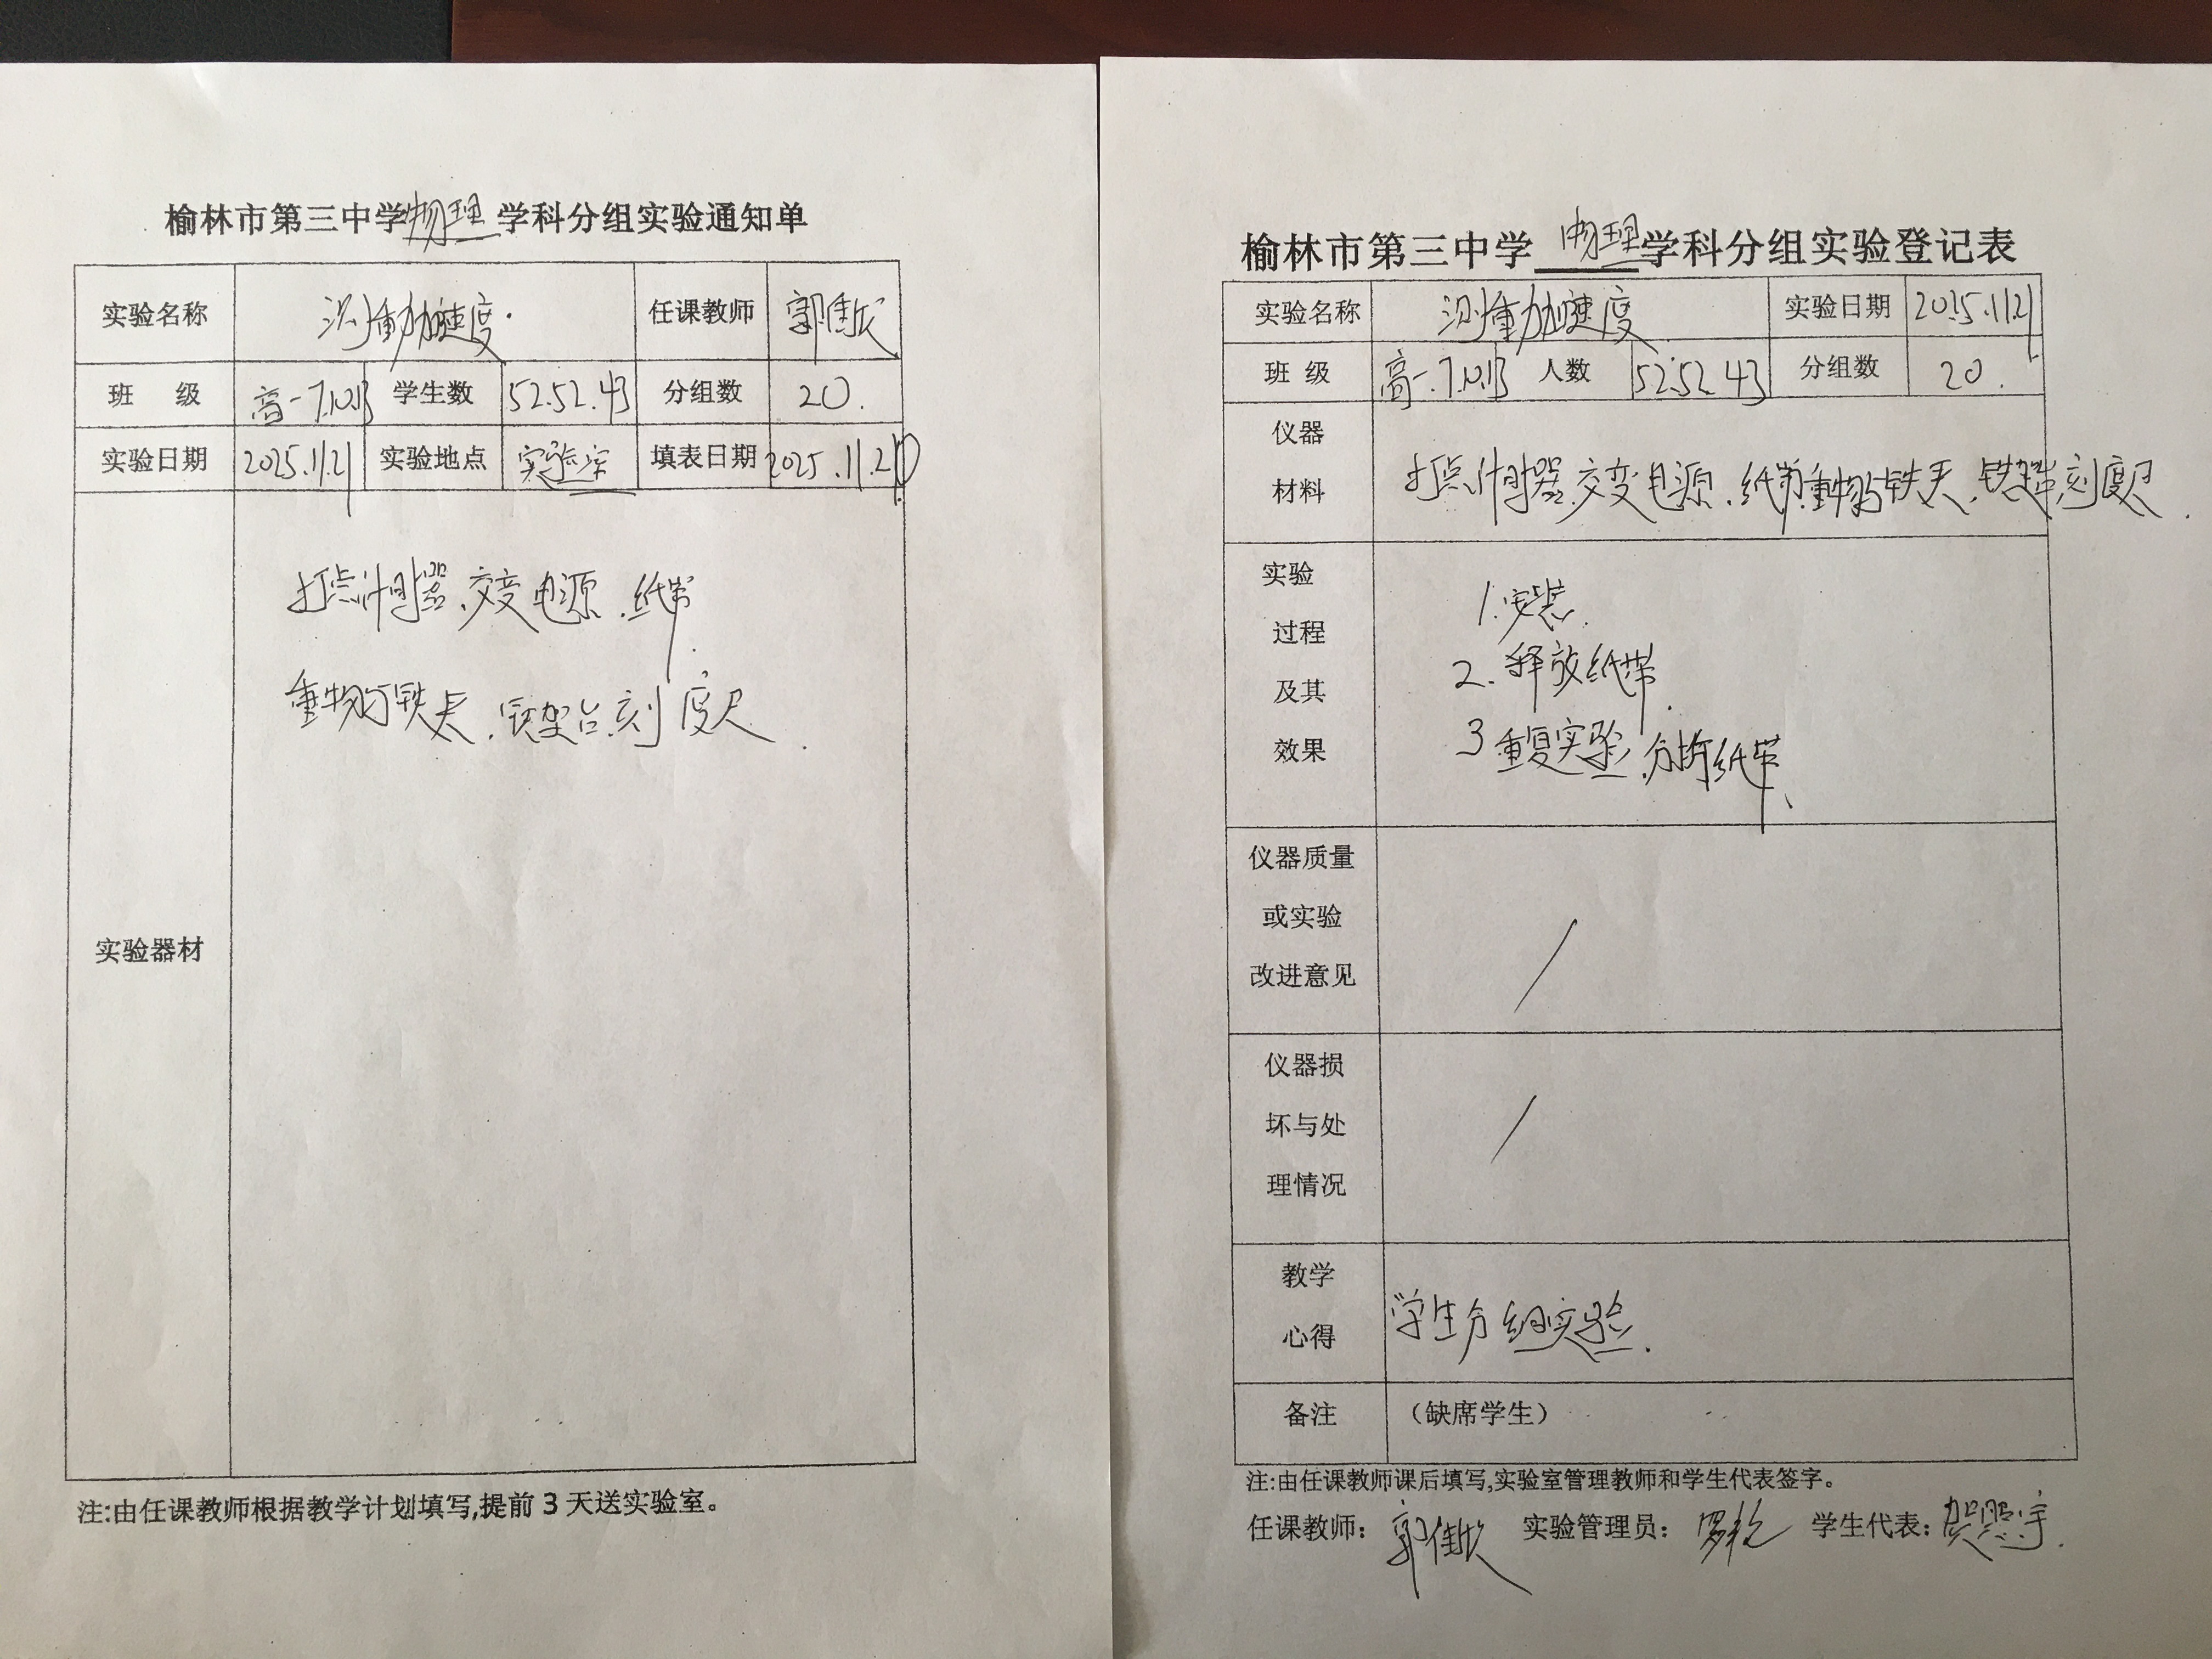 榆林市第三中学物理学科分组实验通知单
实验名称 测重力加速度. 任课教师 郭佳欣
班 级 高一7.10.13 学生数 52.52.43 分组数 20.
实验日期 2025.11.21 实验地点 实验室 填表日期 2025.11.20
实验器材
打点计时器.交变电源.纸带.
重物与铁夹.铁架台.刻度尺.
注:由任课教师根据教学计划填写,提前3天送实验室。
榆林市第三中学物理学科分组实验登记表
实验名称 测重力加速度 实验日期 2025.11.21
班 级 高一.7.10.13 人数 52.52.43 分组数 20.
仪器
材料
打点计时器.交变电源.纸带.重物与铁夹.刻度尺.
实验
过程
及其
效果
1.安装.
2.释放纸带.
3重复实验.分析纸带.
仪器质量
或实验
改进意见
/
仪器损
坏与处
理情况
/
教学
心得
学生分组实验.
备注 (缺席学生)
注:由任课教师课后填写,实验室管理教师和学生代表签字。
任课教师: 郭佳欣 实验管理员: 学生代表: